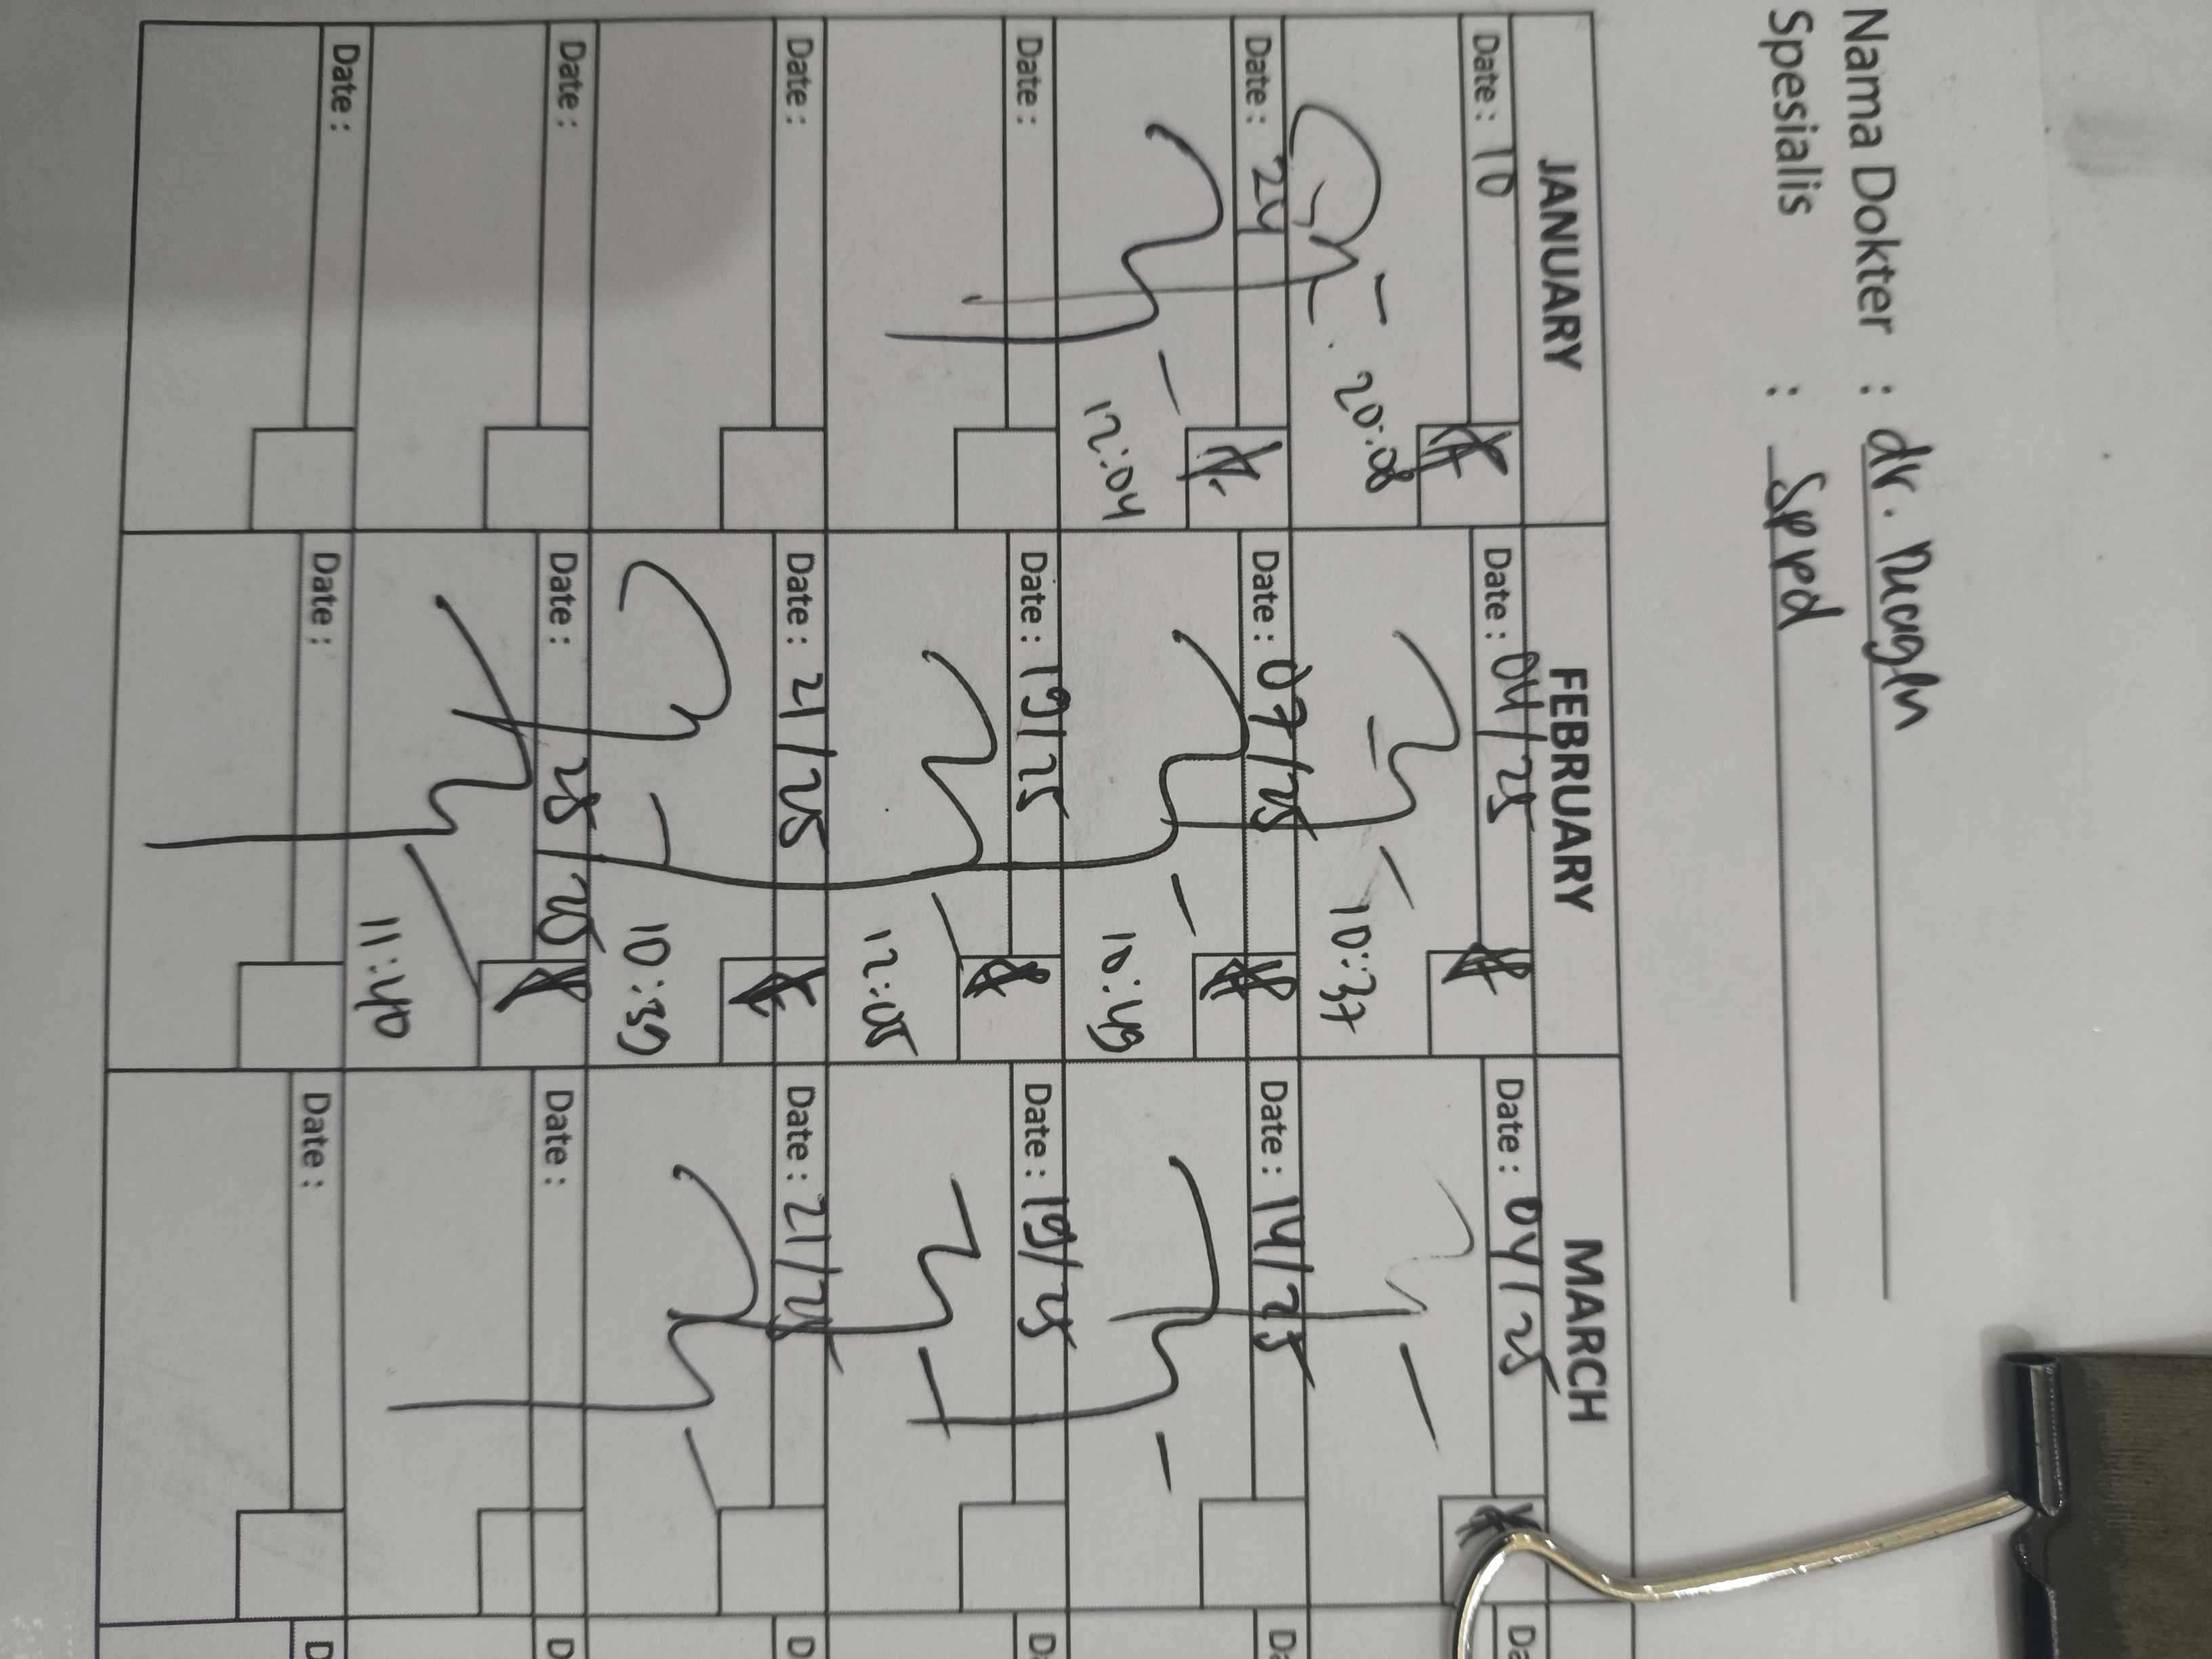 Nama Dokter : dr.
Spesialis : Sppd
JANUARY FEBRUARY MARCH
Date : 10 Date : 04/25 Date : 04/25
20:08 10:37
Date : 24 Date : 07/25 Date : 14/25
12:04 10:49
Date : Date : 19/25 Date : 19/25
12:05
Date : Date : 21/25 Date : 21/25
10:39
Date : Date : 28/25 Date :
11:40
Date : Date : Date :